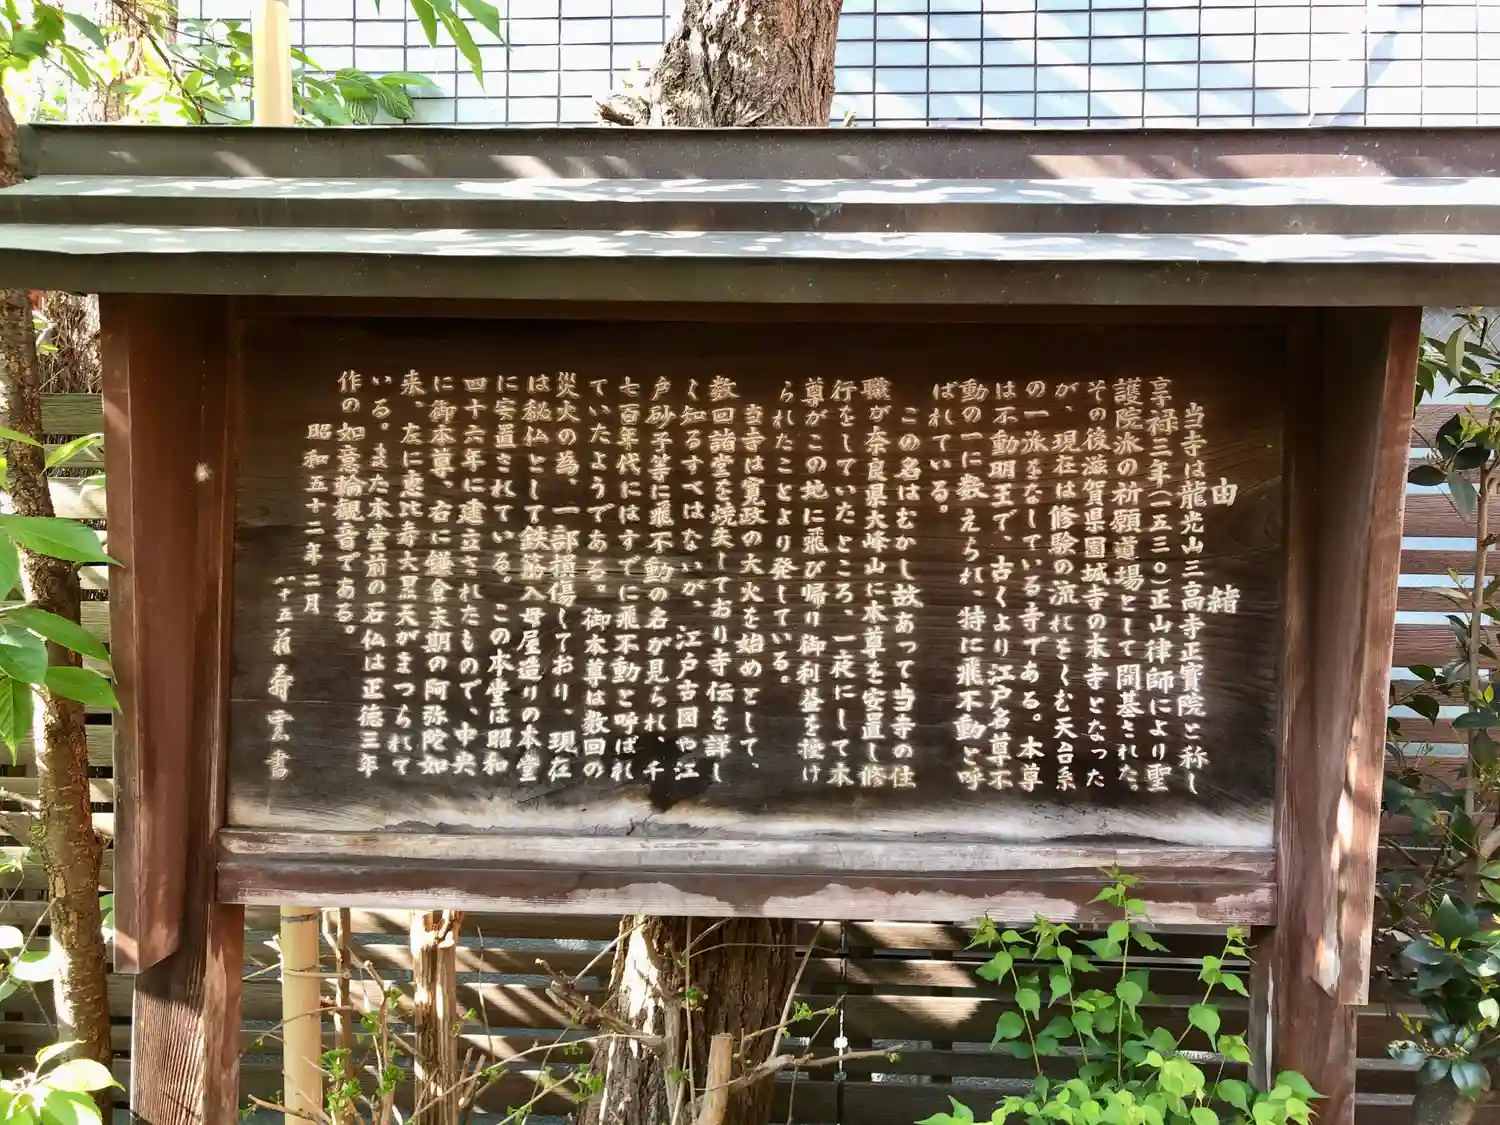 由緒
当寺は龍光山三高寺正寶院と称し
享禄三年(一五三〇)正山律師により聖
護院派の祈願道場として開基された。
その後滋賀県園城寺の末寺となった
が、現在は修験の流れをくむ天台系
の一派をなしている寺である。本尊
は不動明王で、古くより江戸名尊不
動の一に数えられ、特に飛不動と呼
ばれている。
この名はむかし故あって当寺の住
職が奈良県大峰山に本尊を安置し修
行をしていたところ、一夜にして本
尊がこの地に飛び帰り御利益を授け
られたことより発している。
当寺は寛政の大火を始めとして、
数回諸堂を焼失しており寺伝を詳し
く知るすべはないが、江戸古図や江
戸砂子等に飛不動の名が見られ、千
七百年代にはすでに飛不動と呼ばれ
ていたようである。御本尊は数回の
災火の為、一部損傷しており、現在
は秘仏として鉄筋入母屋造りの本堂
に安置されている。この本堂は昭和
四十六年に建立されたもので、中央
に御本尊、右に鎌倉末期の阿弥陀如
来、左に恵比寿大黒天がまつられて
いる。また本堂前の石仏は正徳三年
作の如意輪観音である。
昭和五十二年二月
八十五荘寿雲書